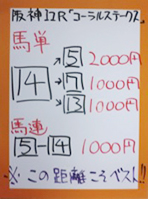 阪神12R「コーラルステークス」
馬単
14 → 5 2000円
→ 7 1000円
→ 13 1000円
馬連
5-14 1000円
※ この距離こそベスト!!